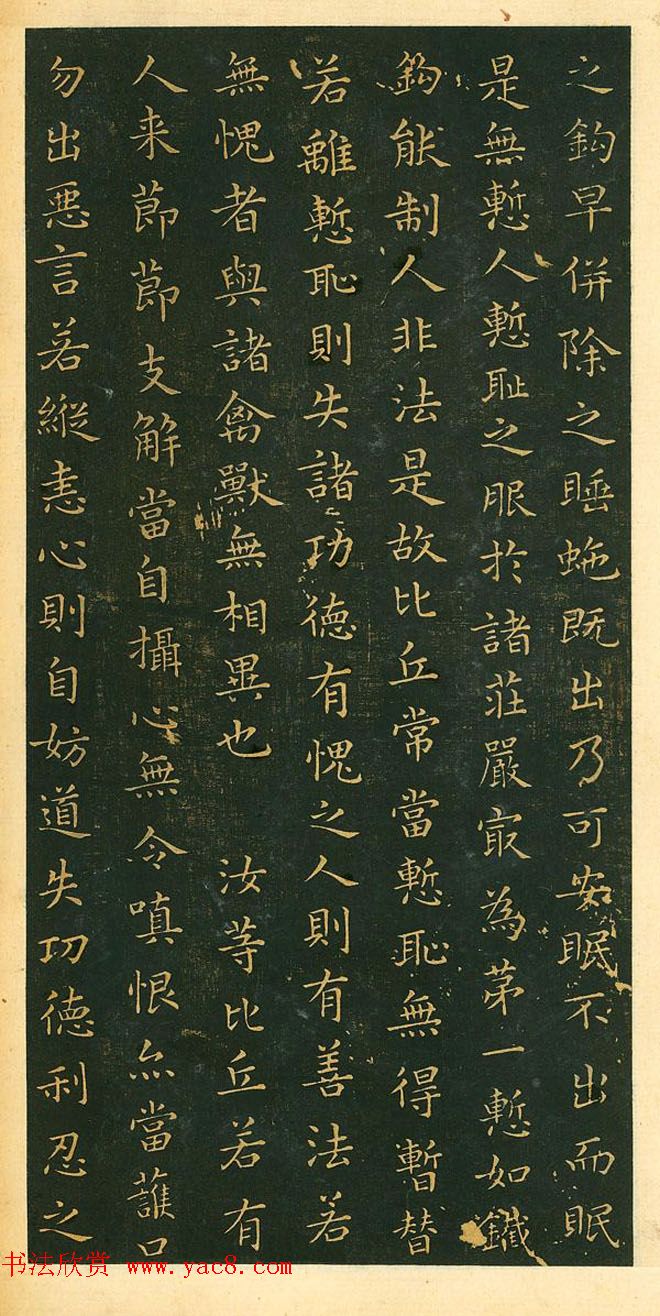 之鈎早併除之睡虵既出乃可安眠不出而眠
是無慙人慙耻之服扵諸莊嚴㝡為苐一慙如鐵
鈎能制人非法是故比丘常當慙恥無得暫替
若離慙恥則失諸功德有愧之人則有善法若
無愧者與諸禽獸無相異也　汝等比丘若有
人来節節支解當自攝心無令嗔恨亦當護口
勿出惡言若縱恚心則自妨道失功德利忍之
书法欣赏 www.yac8.com